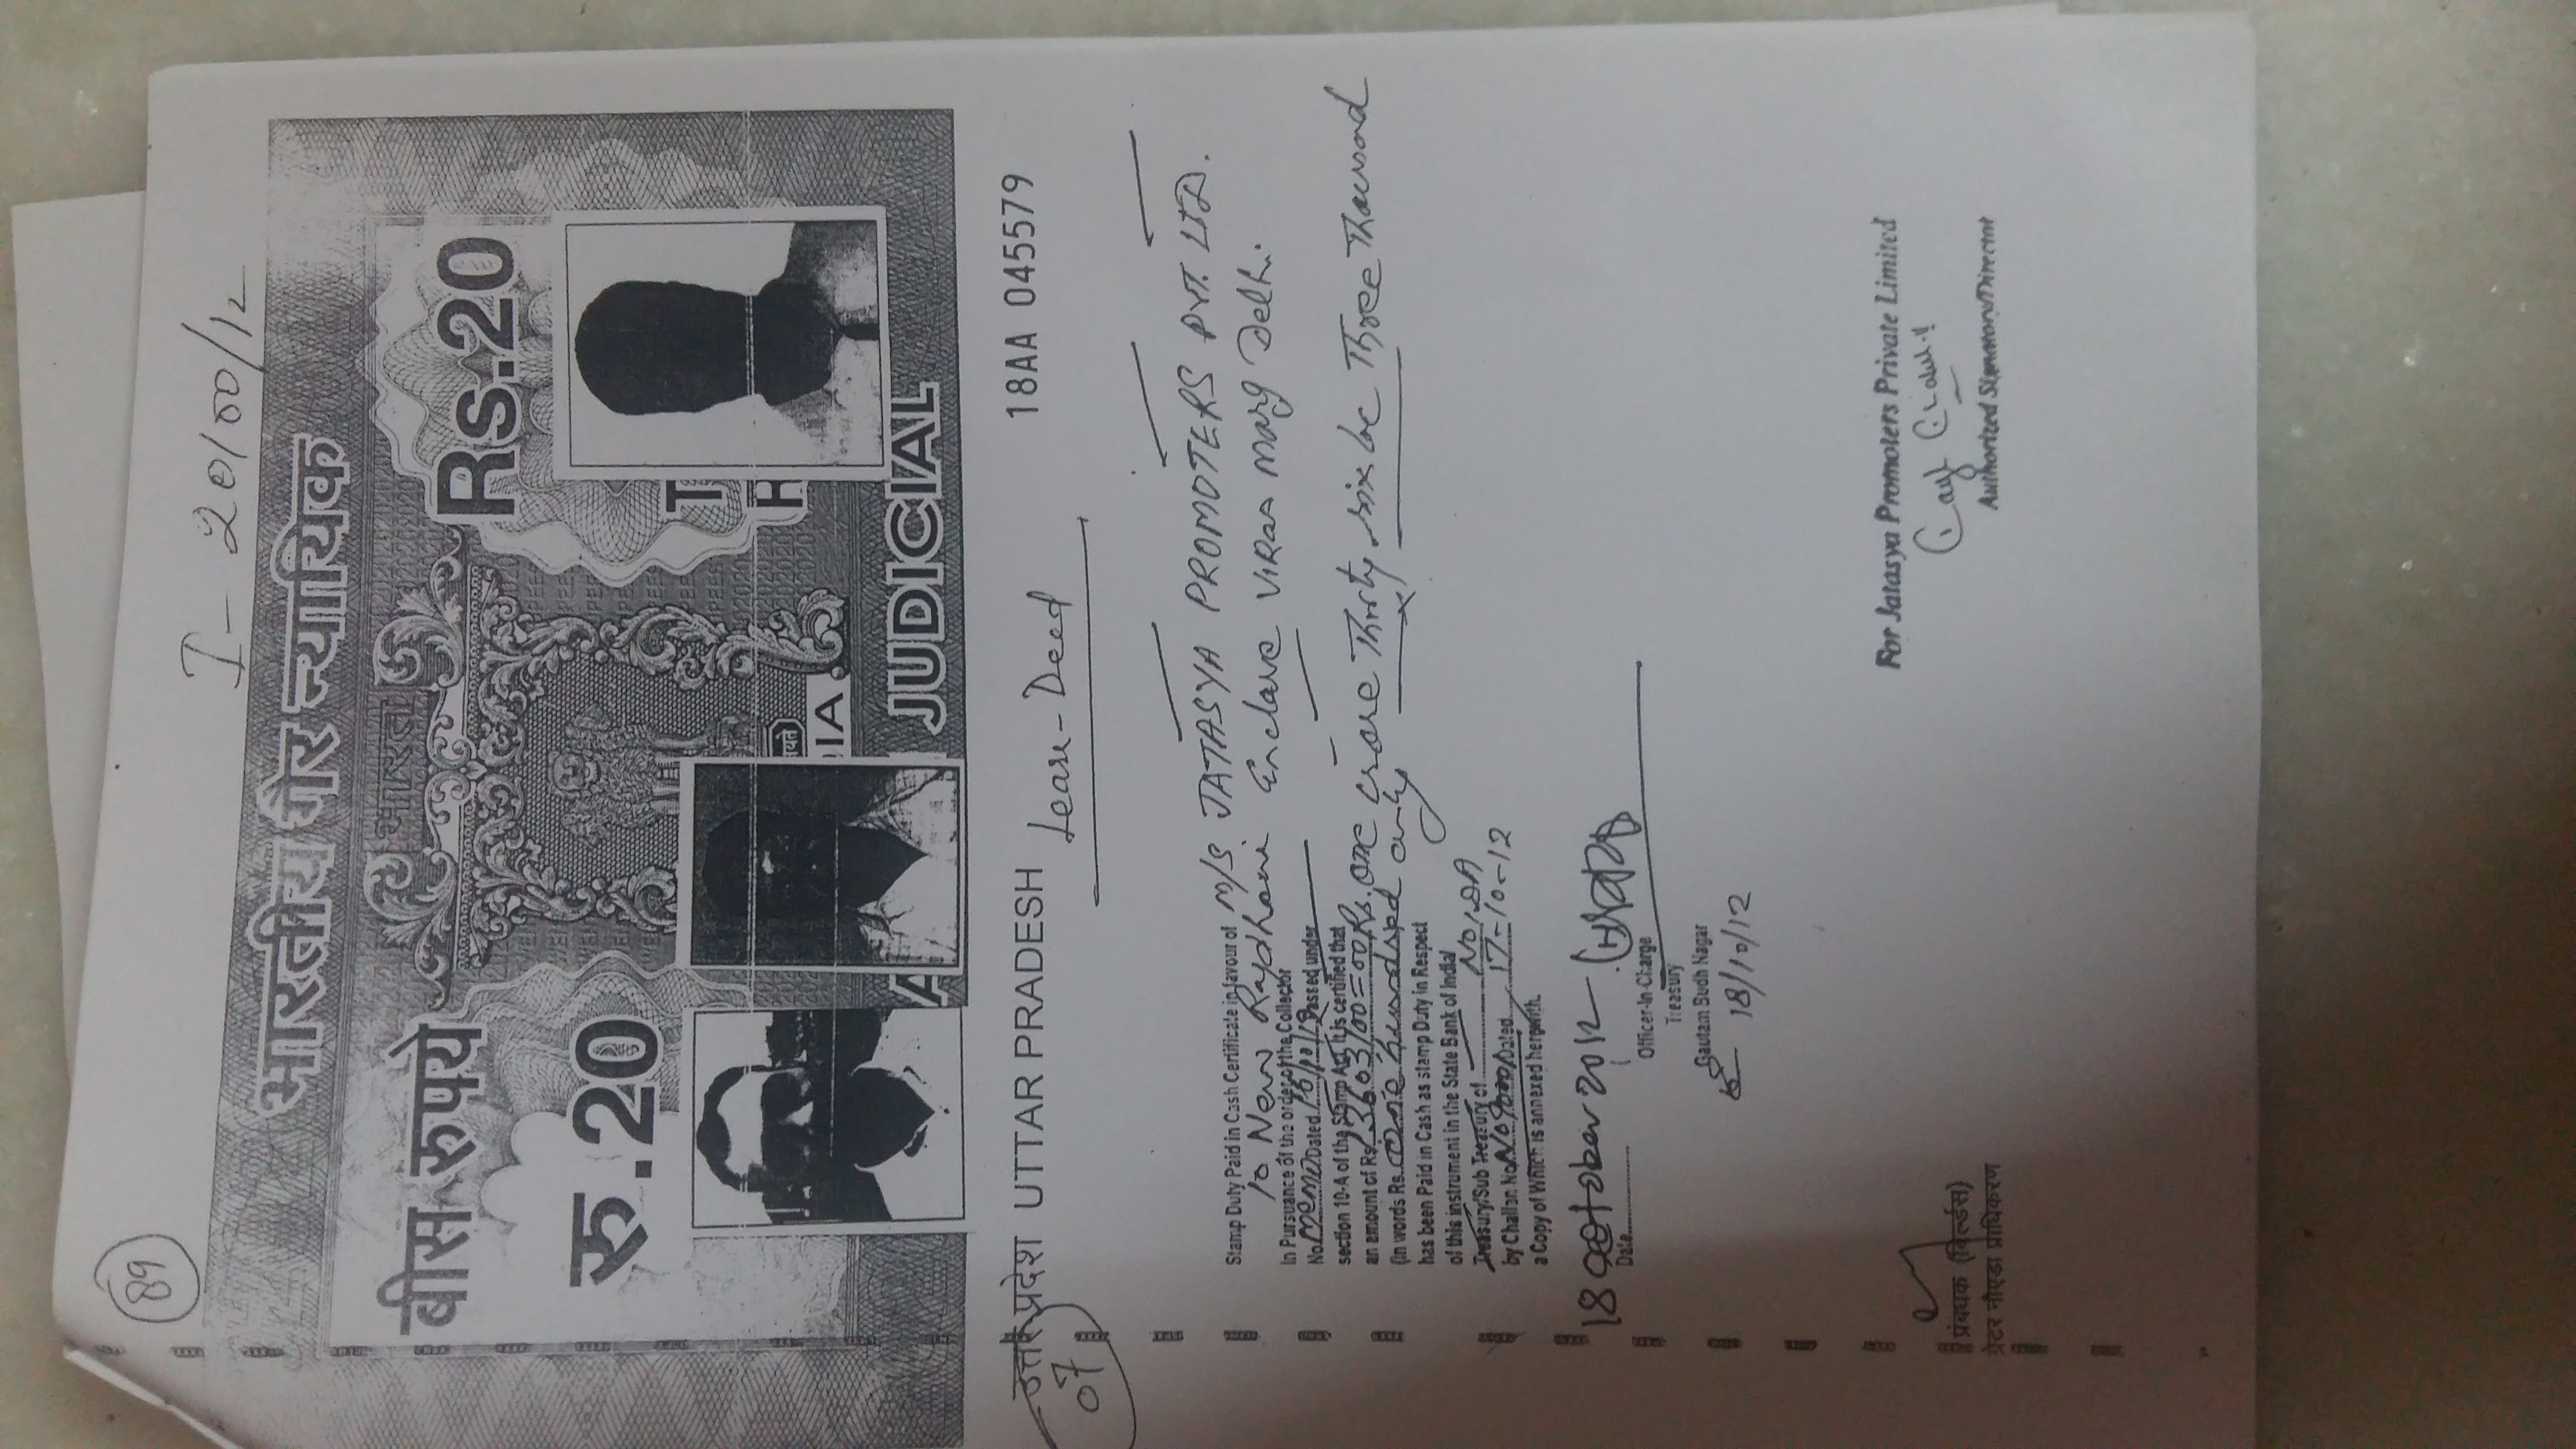 89
I-20100/12
भारतीय गैर न्यायिक
भारत
बीस रुपये
रु.20
Rs.20
JUDICIAL
उत्तर प्रदेश UTTAR PRADESH
18AA 045579
07
Lease-Deed
Stamp Duty Paid in Cash Certificate in favour of M/S JATASYA PROMOTERS PVT. LTD.
10 New Rajdhani Enclave Vikas Marg Delhi.
In Pursuance of the order of the Collector
No. Memo Dated 16/10/12 Passed under
section 10-A of the Stamp Act, it is certified that
an amount of Rs 13603100=00 Rs. One crore Thirty six lac Three Thousand
(In words Rs. One hundred only
has been Paid in Cash as stamp Duty in Respect
of this instrument in the State Bank of India/
Treasury/Sub Treasury of NOIDA
by Challan No. Dated 17-10-12
a Copy of Which is annexed herewith.
18 October 2012
Date
Officer-In-Charge
Treasury
Gautam Budh Nagar
18/10/12
प्रबंधक (बिल्डर्स)
ग्रेटर नौएडा प्राधिकरण
For Jatasya Promoters Private Limited
Authorized Signatory/Director